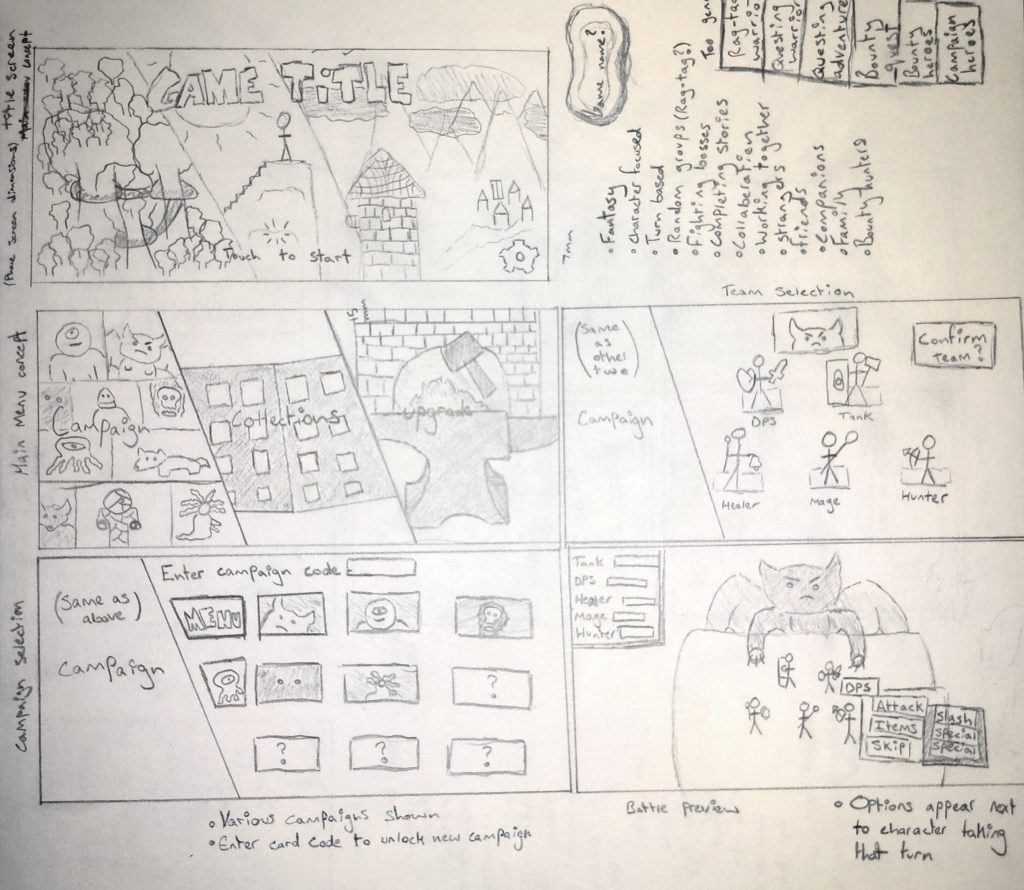 (Phone screen dimensions) Title Screen
concept
GAME TITLE
Touch to start
7mm
Game name?
• Fantasy
• Character focused
• Turn based
• Random groups (Rag-tag?)
• Fighting bosses
• Completing stories
• Collaboration
• Working together
• strangers
• friends
• Companions
• Family
• Bounty hunters
Too gen
Rag-tag
warrio
Questing
warrio
Questing
adventure
Bounty
quest
Bounty
heroes
Campaign
heroes
Main Menu concept
Campaign
Collections
Upgrade
Team Selection
(Same
as
other
two)
Campaign
Confirm
Team?
DPS
Tank
Healer
Mage
Hunter
Campaign Selection
(Same as
above)
Campaign
Enter campaign code
MENU
?
?
?
?
• Various campaigns shown
• Enter card code to unlock new campaign
Tank
DPS
Healer
Mage
Hunter
DPS
Attack
Items
Skip
Slash
Special
Special
Battle Preview
• Options appear next
to character taking
that turn